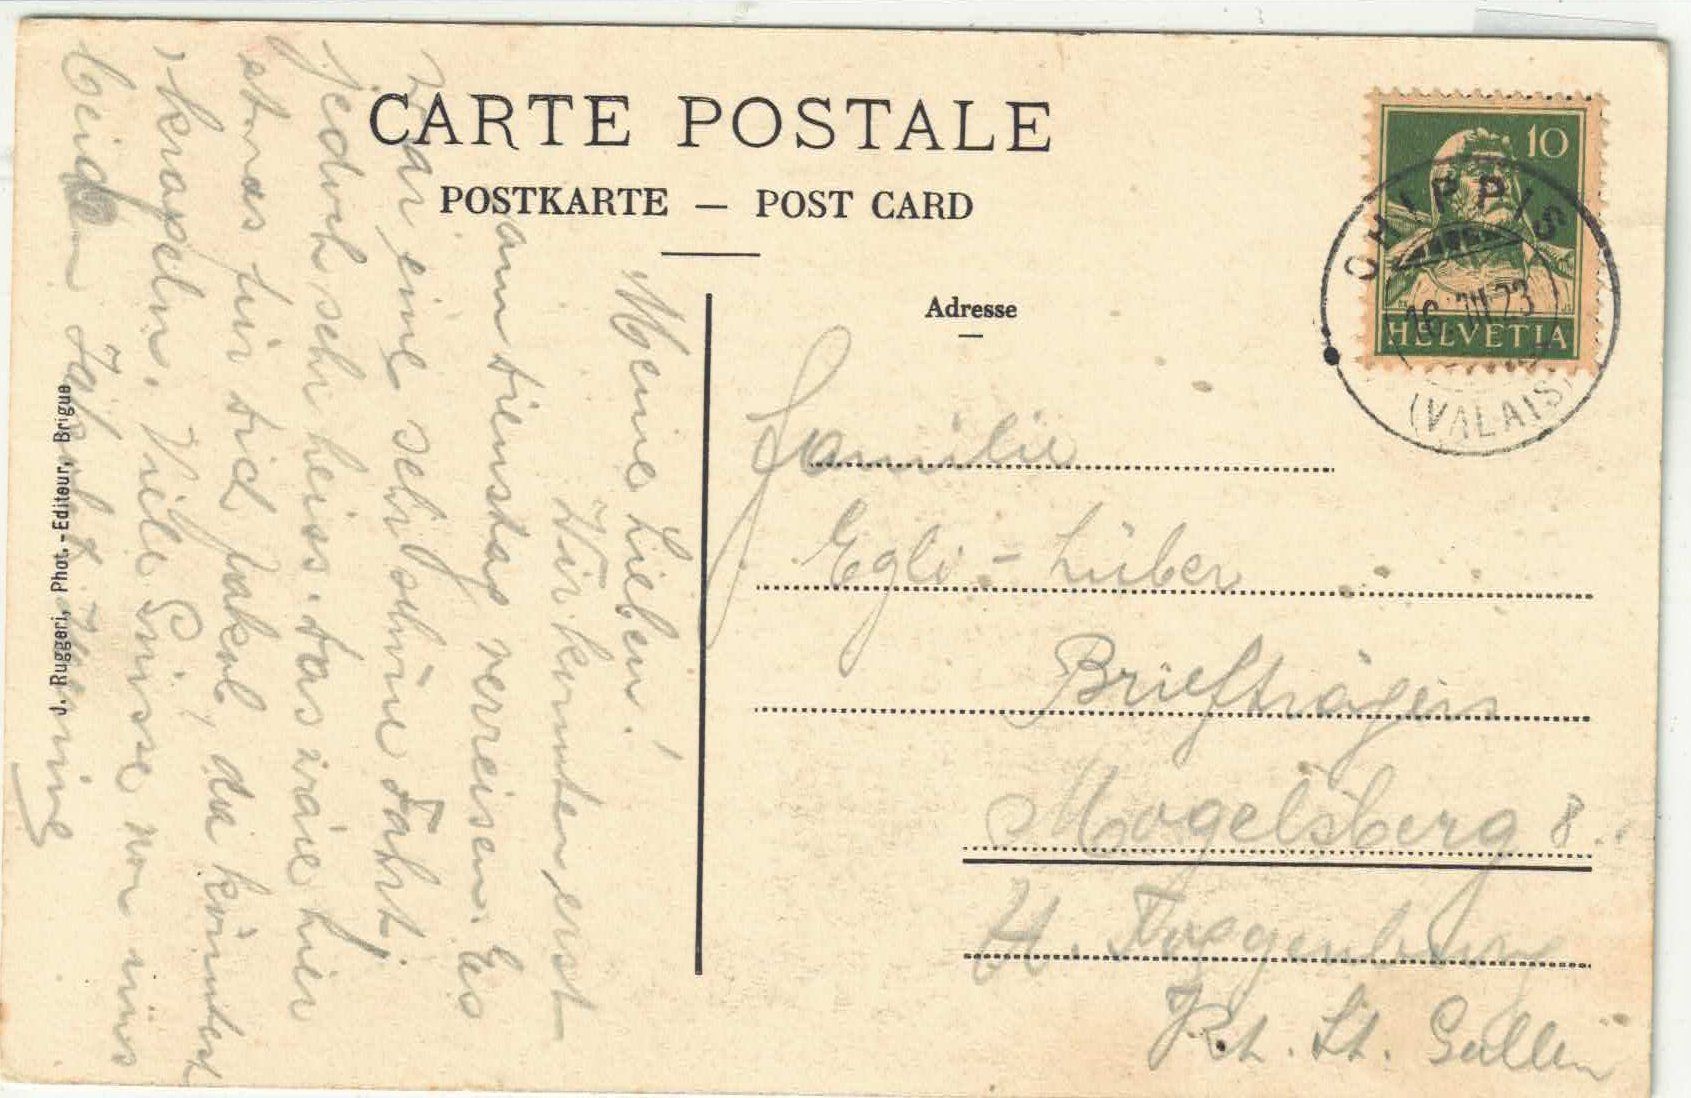 CARTE POSTALE
POSTKARTE — POST CARD
Adresse
10
HELVETIA
CHIPPIS
16. VII. 23
(VALAIS)
Familie
Egli-Lüber
Briefträgers
Mogelsberg 8.
U. Toggenburg
Kt. St. Gallen
Meine Lieben!
Wir konnten erst
am Dienstag verreisen. Es
war eine sehr schöne Fahrt,
jedoch sehr heiss. Das wäre hier
etwas für Dich Jakob, da könntest
kraxeln. Viele Grüsse von uns
beiden Jakob &
J. Ruggeri, Phot.-Editeur, Brigue